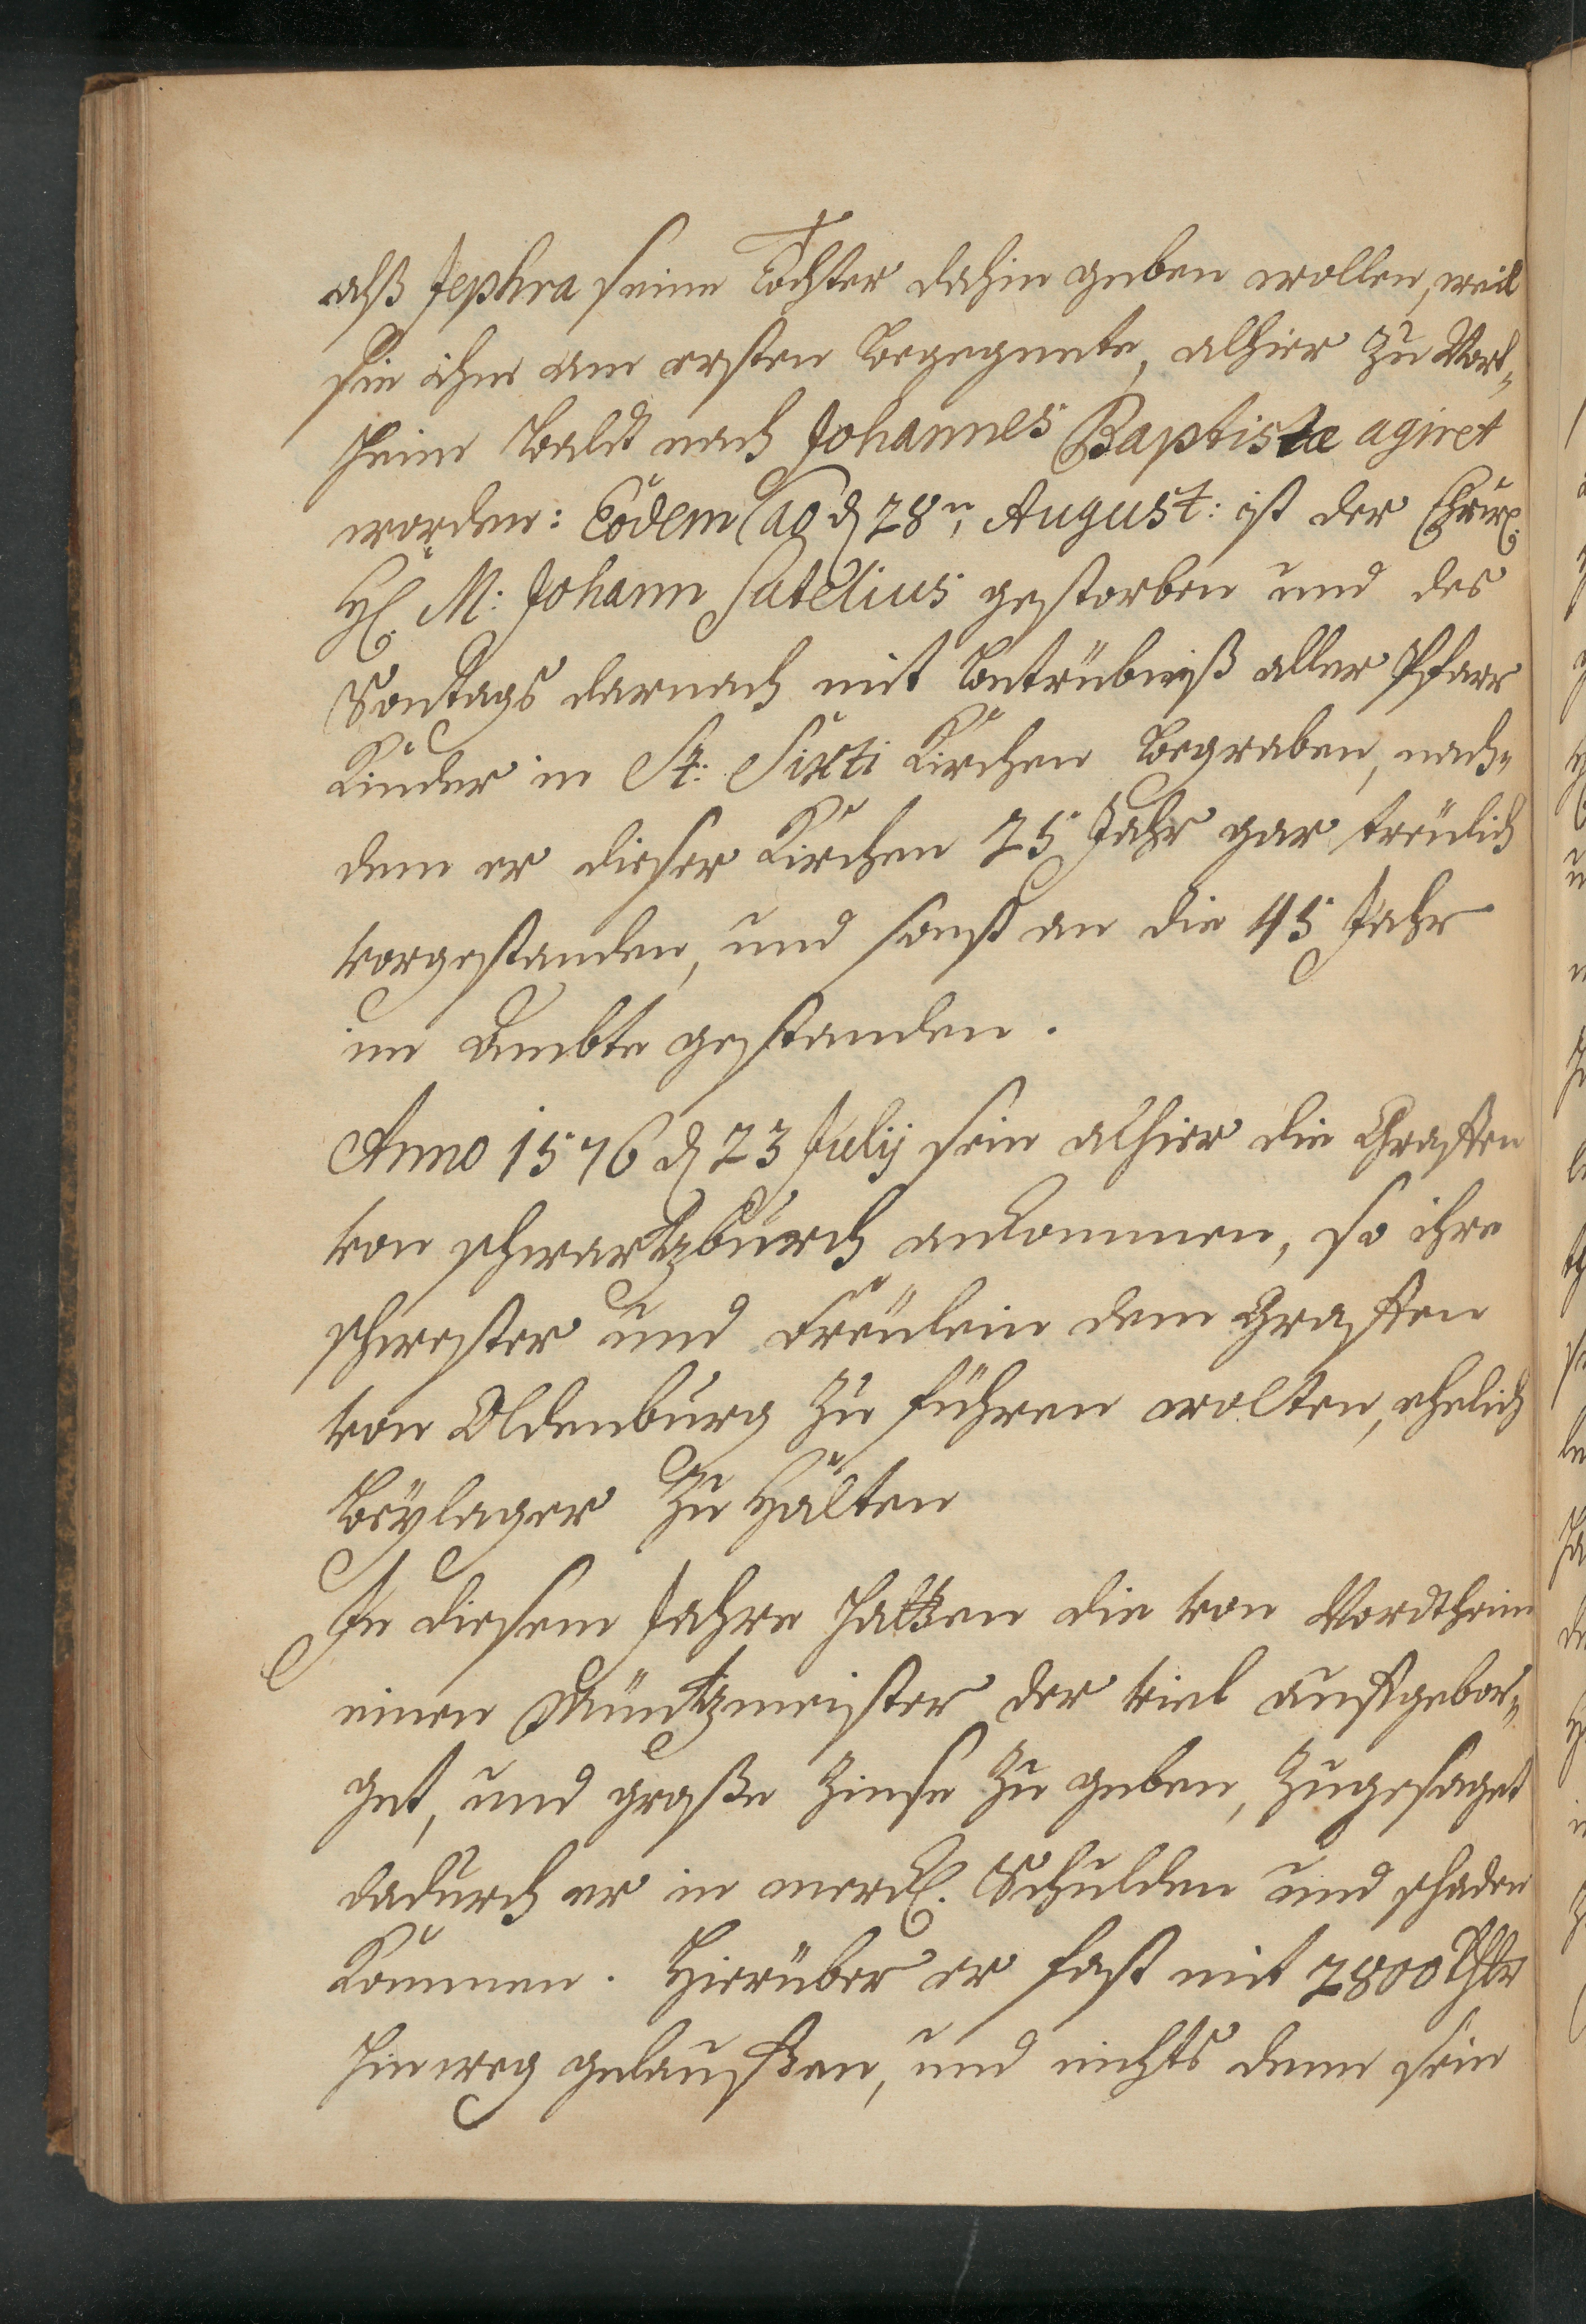 alß Jephra seine Tochter dahin geben wollen, weil
sie ihm am ersten begegnete, alhier zu Nort„
heim baldt nach Johannes Baptistæ agiret
worden: Eodem ao d 28n August: ist der Ehrw
H. M: Johann Satelius gestorben und des
Sontags darnach mit betrübniß aller Pfarr
Kinder in St: Sixti Kirchen begraben, nach„
dem er dieser Kirchen 25 Jahr gar treulich
vorgestanden, und sonst an die 45 Jahr
im Ambte gestanden.
Anno 1576 d 23 Julij sein alhier die Graffen
von schwartzburch ankommen, so ihre
schwester und Freulein dem Graffen
von Oldenburg zu führen wolten, ehelich
beylager zu halten
In diesem Jahre hatten die von Nordtheim
einen Müntzmeister der viel auffgebor„
get, und große Zinse zu geben, zugesaget
dadurch er in merckl. Schulden und schaden
kommen. Hierüber er fast mit 2800 Thlr
hinweg gelauffen, und nichts denn sein